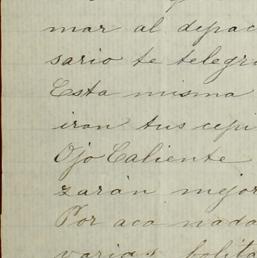 mar al depac
sario te telegr
Esta misma
iran tus cepi
Ojo Caliente
zarán mejor
Por aca nada
varias bolita